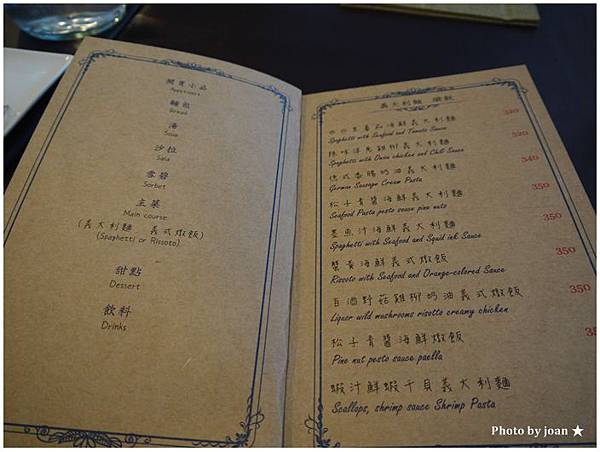 開胃小品
Appetizers
麵包
Bread
湯
Soup
沙拉
Sala
雪碧
Sorbet
主菜
Main course
(義大利麵 義式燉飯)
(Spaghetti or Rissoto)
甜點
Dessert
飲料
Drinks
義大利麵 燉飯
海鮮義大利麵 320
Spaghetti with Seafood and Tomato Sauce
辣味洋蔥雞柳義大利麵 320
Spaghetti with Onion chicken and Chili Sauce
德式香腸奶油義大利麵 340
German Sausage Cream Pasta
松子青醬海鮮義大利麵 350
Seafood Pasta pesto sauce pine nuts
墨魚汁海鮮義大利麵 350
Spaghetti with Seafood and Squid ink Sauce
蟹黃海鮮義式燉飯 350
Rissoto with Seafood and Orange-colored Sauce
白酒野菇雞柳奶油義式燉飯 350
Liquor wild mushrooms risotto creamy chicken
松子青醬海鮮燉飯
Pine nut pesto sauce paella
蝦汁鮮蝦干貝義大利麵
Scallops, shrimp sauce Shrimp Pasta
Photo by joan ★